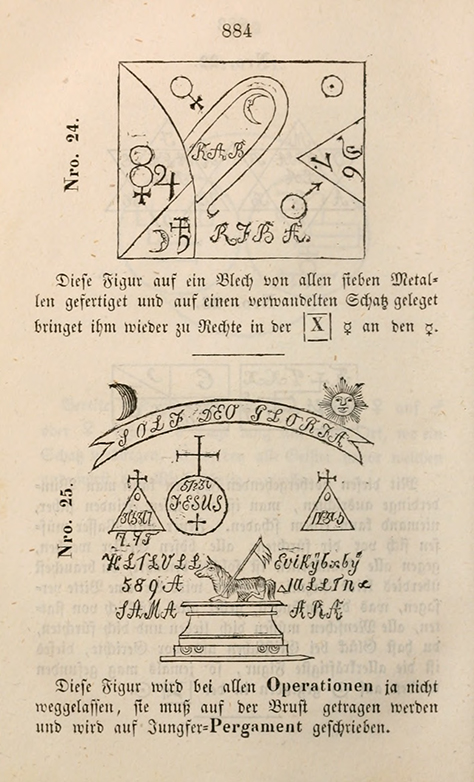 884
Nro. 24.
RAB
RIBA.
Dieſe Figur auf ein Blech von allen ſieben Metal=
len gefertiget und auf einen verwandelten Schatz geleget
bringet ihm wieder zu Rechte in der |X| ☿ an den ☿.
SOLI DEO GLORIA
Nro. 25.
JESUS
589 A
SAMA ARA
Dieſe Figur wird bei allen Operationen ja nicht
weggelaſſen, ſie muß auf der Bruſt getragen werden
und wird auf Jungfer=Pergament geſchrieben.